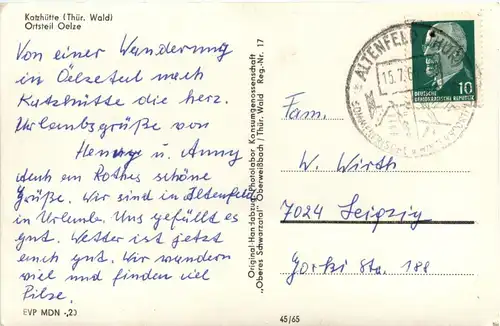 Katzhütte (Thür. Wald)
Ortsteil Oelze
Von einer Wanderung
in Oelzetal nach
Katzhütte die herz.
Urlaubsgrüße von
u. Anny
auch an Rothes schöne
Grüße. Wir sind in Altenfeld
in Urlaub. Uns gefällt es
gut. Wetter ist jetzt
auch gut. Wir wandern
viel und finden viel
Pilze.
EVP MDN -,20
Original Handabzug Photolabor Konsumgenossenschaft
„Oberes Schwarzatal" Oberweißbach / Thür. Wald Reg.-Nr. 17
45/65
ALTENFELD (THÜR
15.7.6
DEUTSCHE
DEMOKRATISCHE REPUBLIK
10
Fam.
W. Wirth
7024 Leipzig
Gorki Str. 188